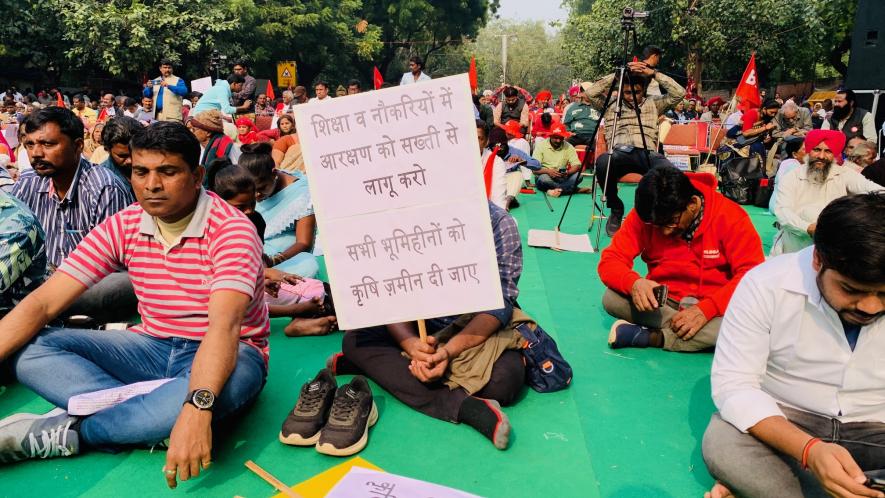 शिक्षा व नौकरियों में
आरक्षण को सख्ती से
लागू करो
सभी भूमिहीनों को
कृषि ज़मीन दी जाए